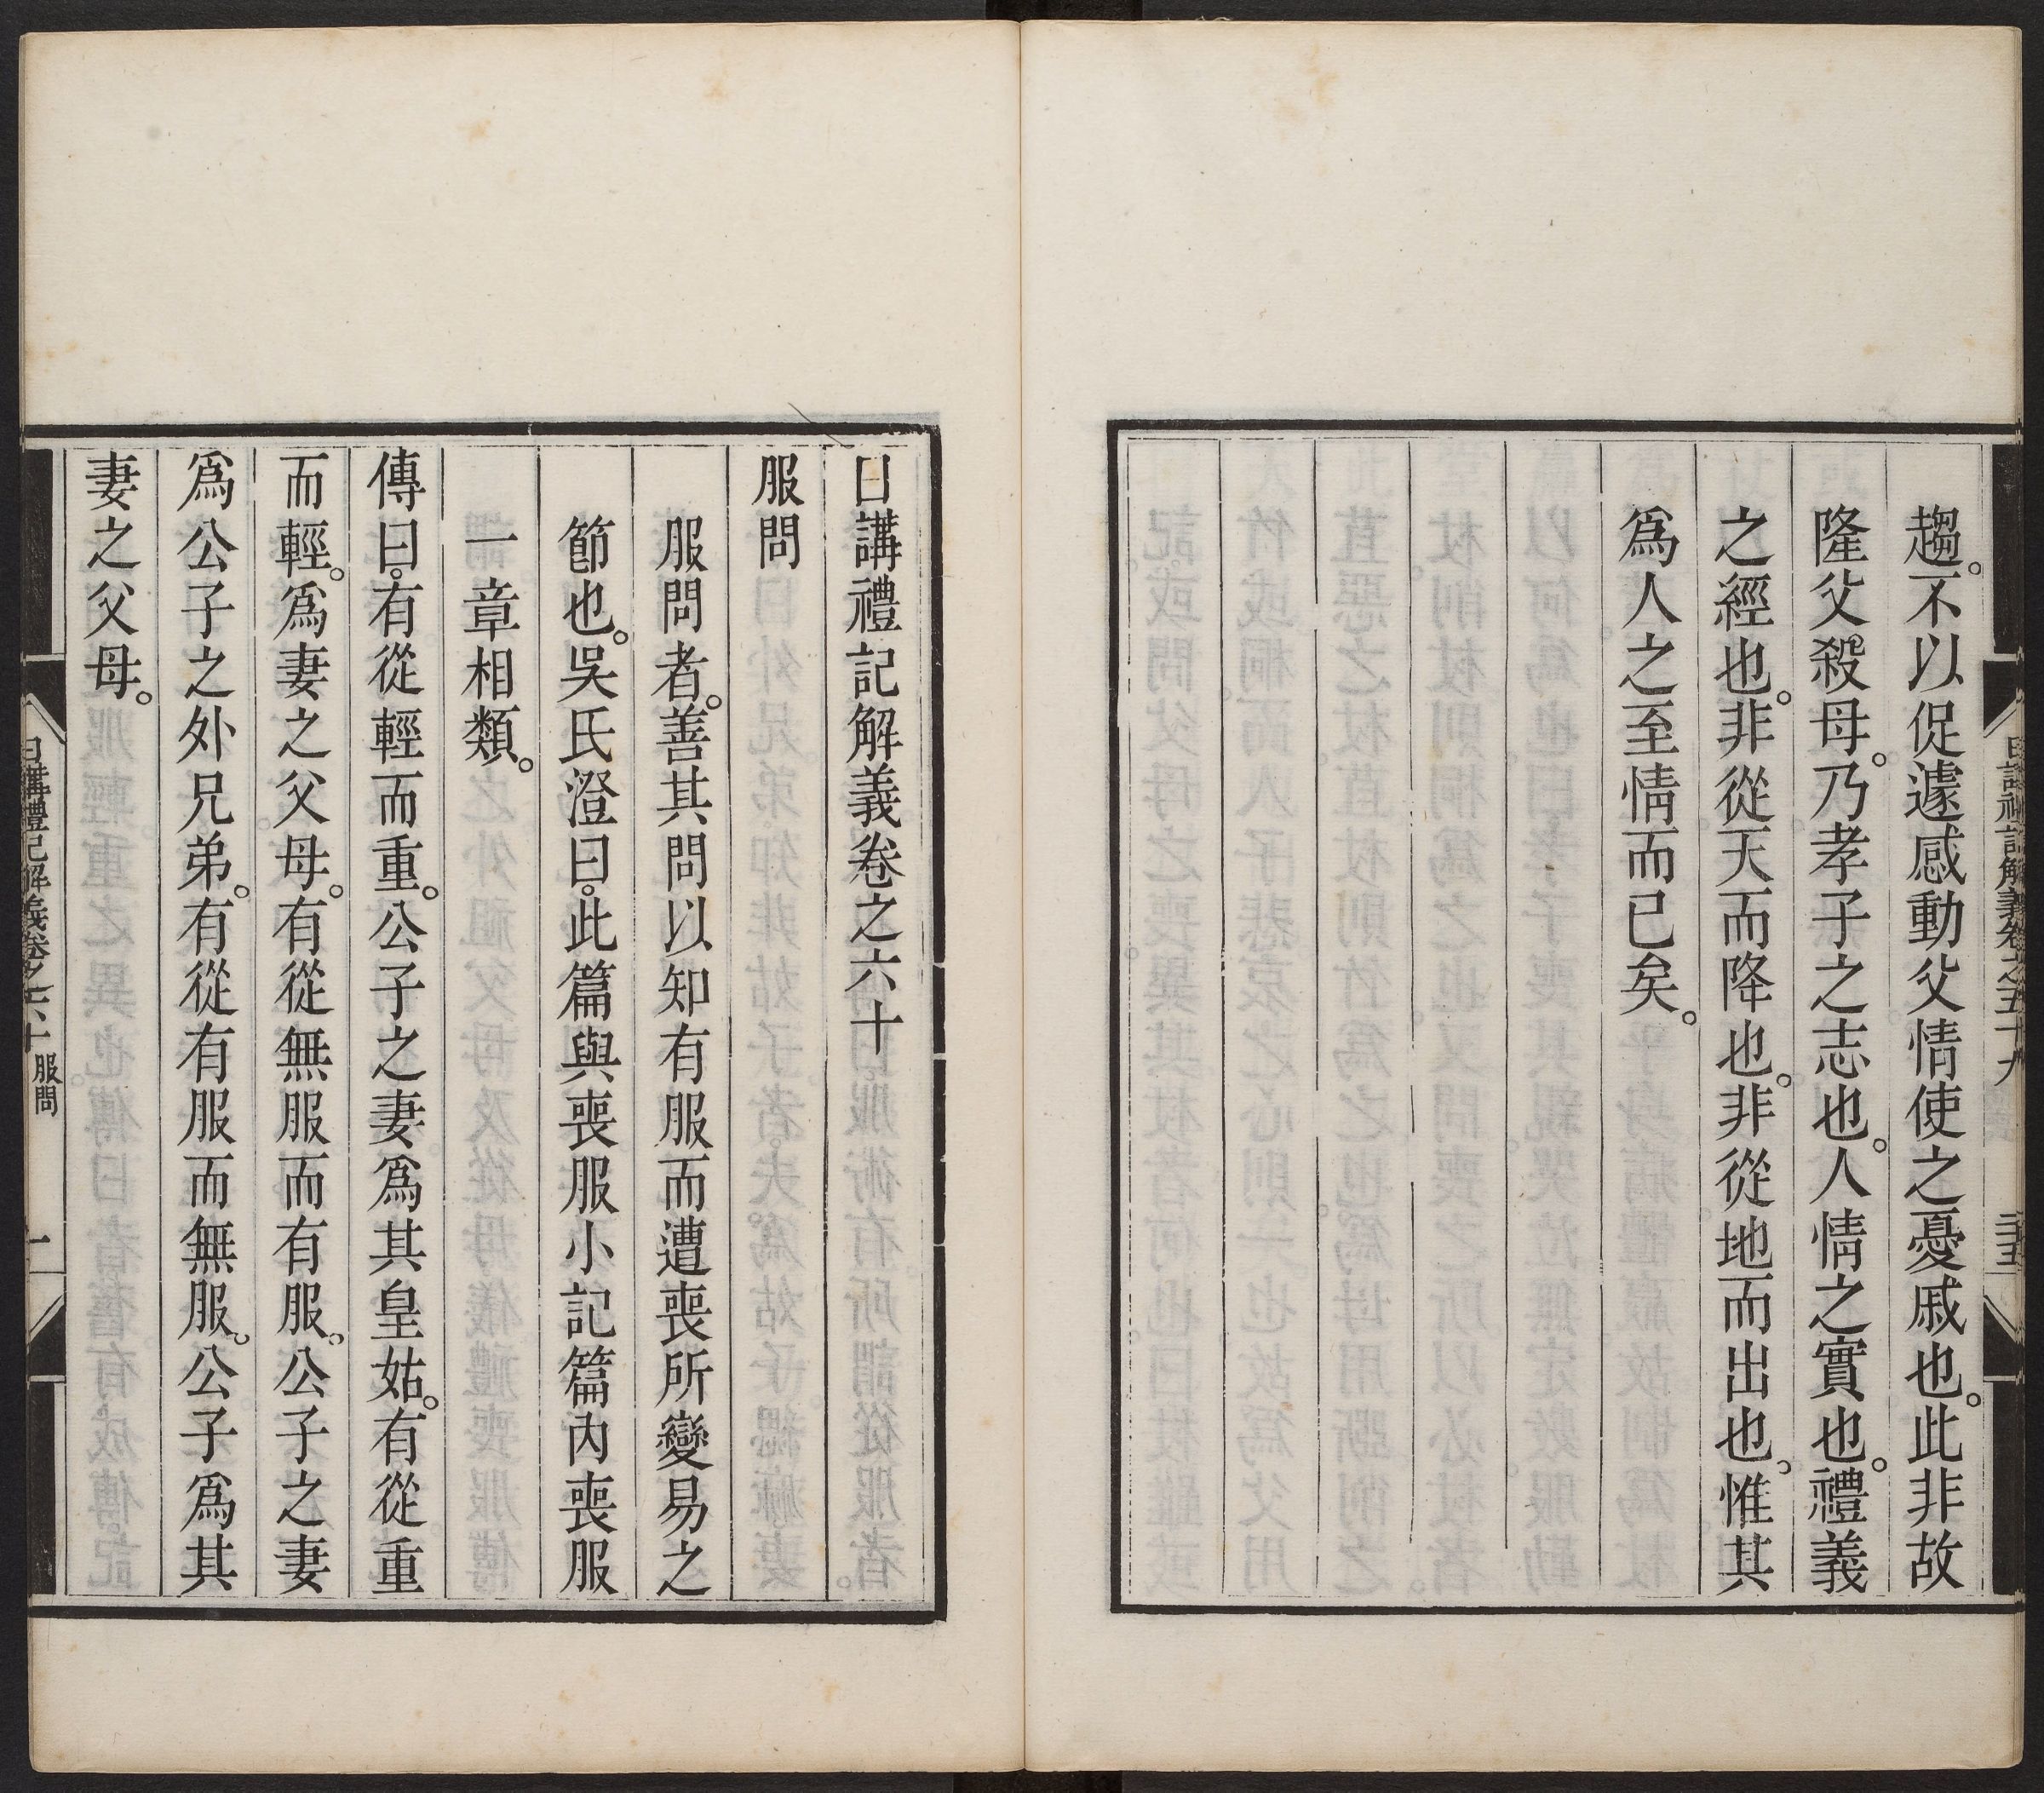 趨。不以促遽感動父情使之憂戚也。此非故
隆父殺母。乃孝子之志也。人情之實也。禮義
之經也。非從天而降也。非從地而出也。惟其
爲人之至情而已矣。
日講禮記解義卷之六十
服問
服問者。善其問以知有服而遭喪所變易之
節也。吳氏澄曰。此篇與喪服小記篇內喪服
一章相類。
傳曰。有從輕而重。公子之妻爲其皇姑。有從重
而輕。爲妻之父母。有從無服而有服。公子之妻
爲公子之外兄弟。有從有服而無服。公子爲其
妻之父母。
日講禮記解義卷之六十 服問 一